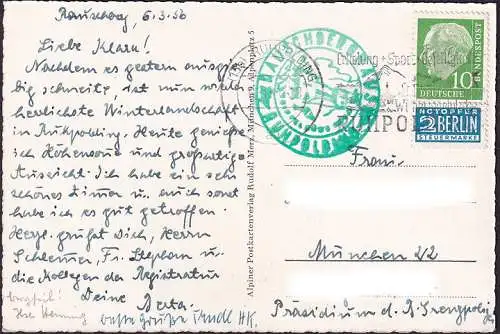 Rauschberg, 6.3.56
Liebe Klara!
Nachdem es gestern ausgie-
big schneite, ist nun wieder
herrlichste Winterlandschaft
in Ruhpolding. Heute genieße
ich Höhensonne und großartige
Aussicht. Ich habe ein sehr
schönes Zimmer u. auch sonst
habe ich es gut getroffen.
Herzl. grüßt Dich, Herrn
Fr. Stephan u.
die Kollegen der Registratur
Deine Berta.
beste Grüße
Alpiner Postkartenverlag Rudolf Menz, München 9, Alpenplatz 5
RAUSCHBERG
RUHPOLDING
Erholung + Sport
DEUTSCHE
BUNDESPOST
10
NOTOPFER
2 BERLIN
STEUERMARKE
Frau
München 22
Präsidium d. B. Grenzpolizei